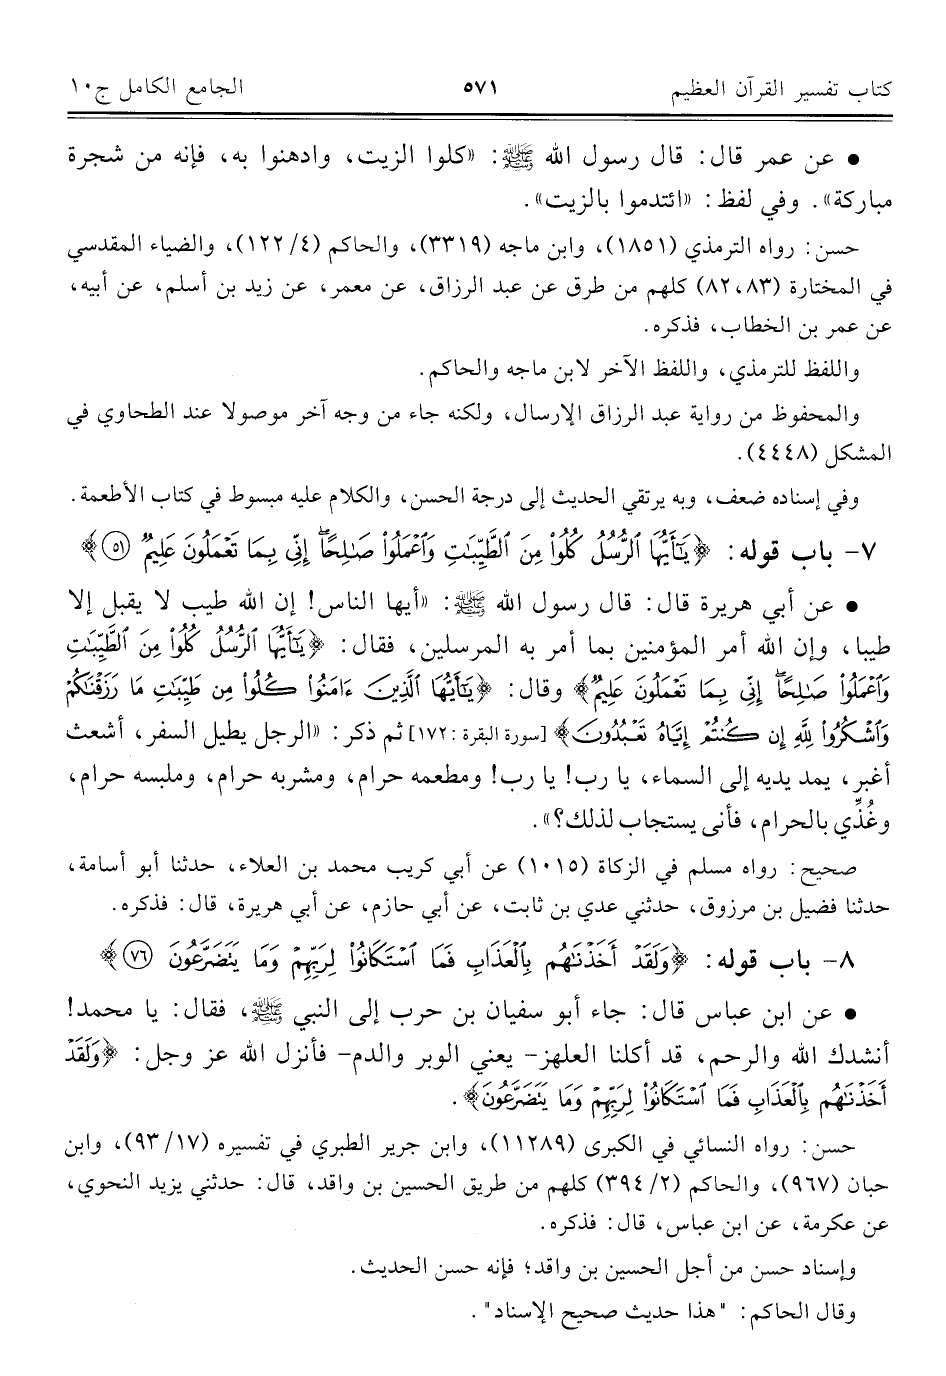 كتاب تفسير القرآن العظيم ٥٧١ الجامع الكامل ج١٠
• عن عمر قال: قال رسول الله ﷺ: «كلوا الزيت، وادهنوا به، فإنه من شجرة
مباركة». وفي لفظ: «ائتدموا بالزيت».
حسن: رواه الترمذي (١٨٥١)، وابن ماجه (٣٣١٩)، والحاكم (٤/ ١٢٢)، والضياء المقدسي
في المختارة (٨٢،٨٣) كلهم من طرق عن عبد الرزاق، عن معمر، عن زيد بن أسلم، عن أبيه،
عن عمر بن الخطاب، فذكره.
واللفظ للترمذي، واللفظ الآخر لابن ماجه والحاكم.
والمحفوظ من رواية عبد الرزاق الإرسال، ولكنه جاء من وجه آخر موصولا عند الطحاوي في
المشكل (٤٤٤٨).
وفي إسناده ضعف، وبه يرتقي الحديث إلى درجة الحسن، والكلام عليه مبسوط في كتاب الأطعمة.
٧- باب قوله: ﴿يَٰٓأَيُّهَا ٱلرُّسُلُ كُلُوا۟ مِنَ ٱلطَّيِّبَٰتِ وَٱعْمَلُوا۟ صَٰلِحًا ۖ إِنِّى بِمَا تَعْمَلُونَ عَلِيمٌ ۝٥١﴾
• عن أبي هريرة قال: قال رسول الله ﷺ: «أيها الناس! إن الله طيب لا يقبل إلا
طيبا، وإن الله أمر المؤمنين بما أمر به المرسلين، فقال: ﴿يَٰٓأَيُّهَا ٱلرُّسُلُ كُلُوا۟ مِنَ ٱلطَّيِّبَٰتِ
وَٱعْمَلُوا۟ صَٰلِحًا ۖ إِنِّى بِمَا تَعْمَلُونَ عَلِيمٌ﴾ وقال: ﴿يَٰٓأَيُّهَا ٱلَّذِينَ ءَامَنُوا۟ كُلُوا۟ مِن طَيِّبَٰتِ مَا رَزَقْنَٰكُمْ
وَٱشْكُرُوا۟ لِلَّهِ إِن كُنتُمْ إِيَّاهُ تَعْبُدُونَ﴾ [سورة البقرة :١٧٢] ثم ذكر: «الرجل يطيل السفر، أشعث
أغبر، يمد يديه إلى السماء، يا رب! يا رب! ومطعمه حرام، ومشربه حرام، وملبسه حرام،
وغُذِّي بالحرام، فأنى يستجاب لذلك؟».
صحيح: رواه مسلم في الزكاة (١٠١٥) عن أبي كريب محمد بن العلاء، حدثنا أبو أسامة،
حدثنا فضيل بن مرزوق، حدثني عدي بن ثابت، عن أبي حازم، عن أبي هريرة، قال: فذكره.
٨- باب قوله: ﴿وَلَقَدْ أَخَذْنَٰهُم بِٱلْعَذَابِ فَمَا ٱسْتَكَانُوا۟ لِرَبِّهِمْ وَمَا يَتَضَرَّعُونَ ۝٧٦﴾
• عن ابن عباس قال: جاء أبو سفيان بن حرب إلى النبي ﷺ، فقال: يا محمد!
أنشدك الله والرحم، قد أكلنا العلهز- يعني الوبر والدم- فأنزل الله عز وجل: ﴿وَلَقَدْ
أَخَذْنَٰهُم بِٱلْعَذَابِ فَمَا ٱسْتَكَانُوا۟ لِرَبِّهِمْ وَمَا يَتَضَرَّعُونَ﴾.
حسن: رواه النسائي في الكبرى (١١٢٨٩)، وابن جرير الطبري في تفسيره (١٧/ ٩٣)، وابن
حبان (٩٦٧)، والحاكم (٢/ ٣٩٤) كلهم من طريق الحسين بن واقد، قال: حدثني يزيد النحوي،
عن عكرمة، عن ابن عباس، قال: فذكره.
وإسناد حسن من أجل الحسين بن واقد؛ فإنه حسن الحديث.
وقال الحاكم: "هذا حديث صحيح الإسناد".